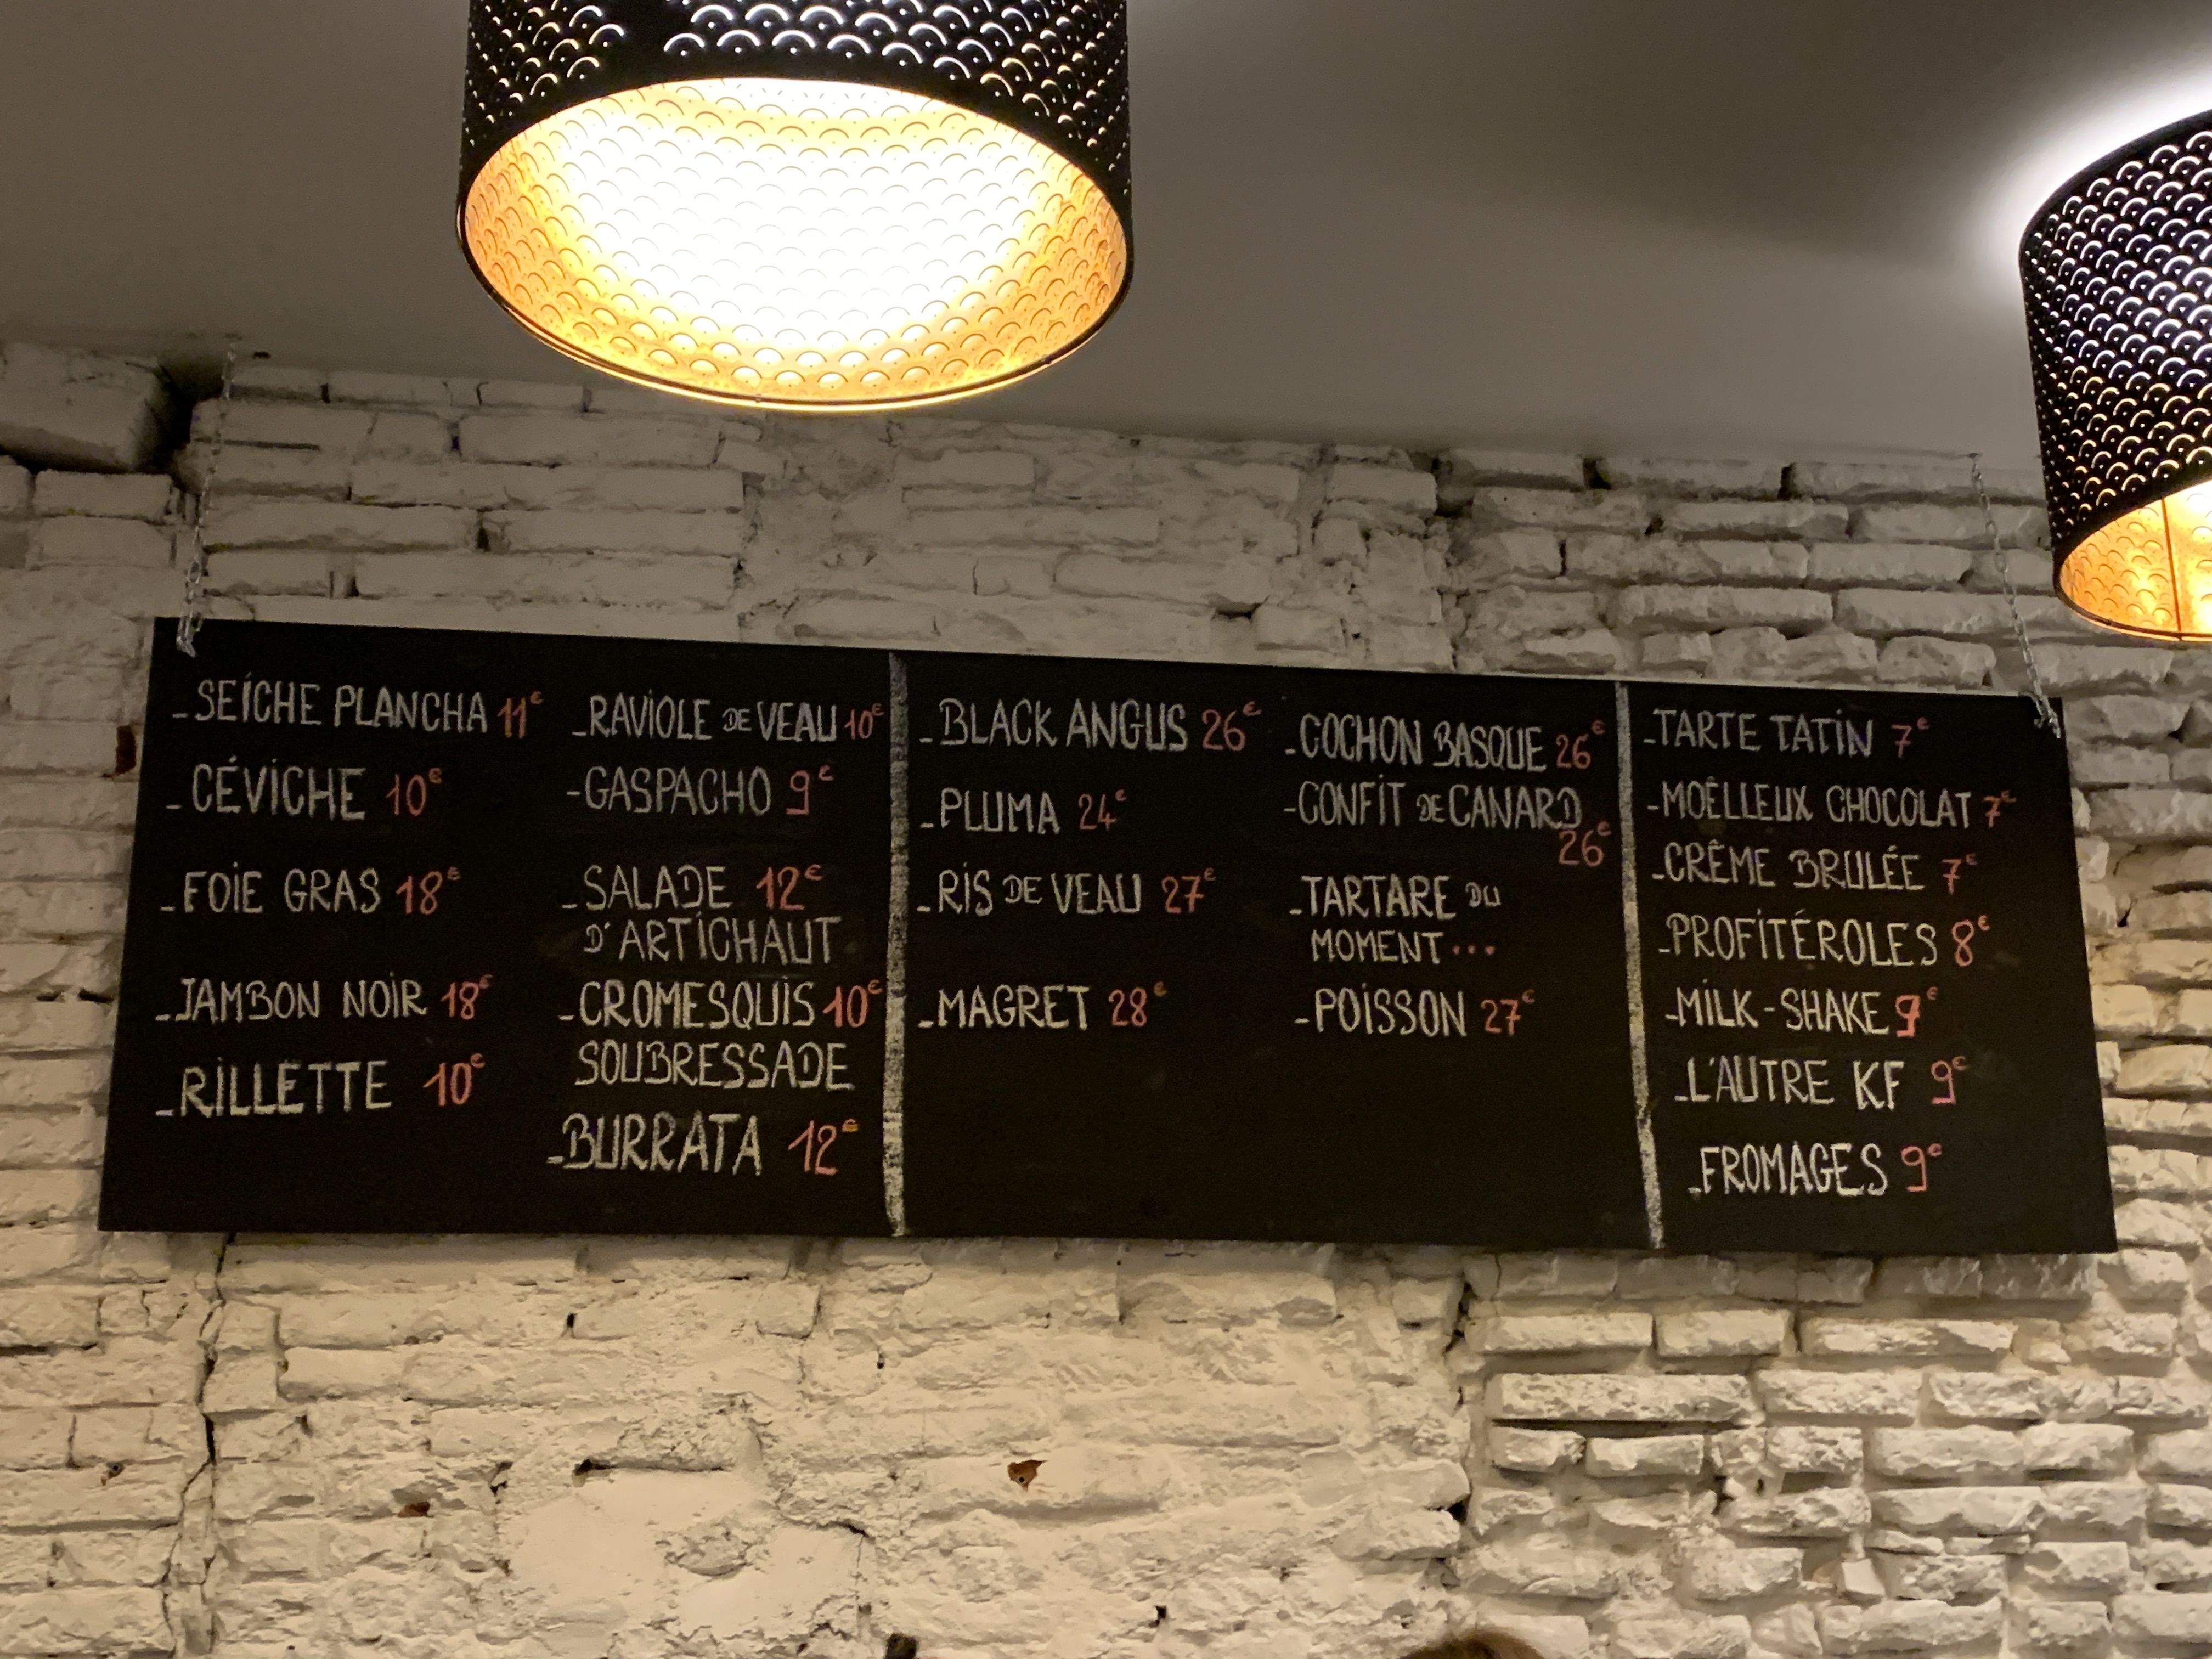 _SEICHE PLANCHA 11€
_CÉVICHE 10€
_FOIE GRAS 18€
_JAMBON NOIR 18€
_RILLETTE 10€
_RAVIOLE DE VEAU 10€
-GASPACHO 9€
_SALADE 12€
D'ARTICHAUT
_CROMESQUIS 10€
SOUBRESSADE
_BURRATA 12€
_BLACK ANGUS 26€
_PLUMA 24€
_RIS DE VEAU 27€
_MAGRET 28€
_COCHON BASQUE 26€
-CONFIT DE CANARD
26€
_TARTARE DU
MOMENT...
_POISSON 27€
_TARTE TATIN 7€
-MOËLLEUX CHOCOLAT 7€
_CRÊME BRULÉE 7€
_PROFITÉROLES 8€
_MILK-SHAKE 9€
_L'AUTRE KF 9€
_FROMAGES 9€